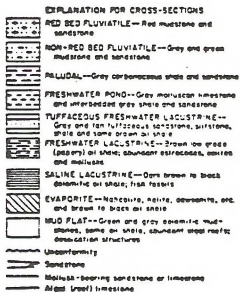 EXPLANATION FOR CROSS-SECTIONS
RED BED FLUVIATILE-- Red mudstone and
sandstone
NON-RED BED FLUVIATILE--Grey and green
mudstone and sandstone
PALUDAL--Grey carbonaceous shale and sandstone
FRESHWATER POND--Grey molluscan limestone
and interbedded grey shale and sandstone
TUFFACEOUS FRESHWATER LACUSTRINE--
Grey and tan tuffaceous sandstone, siltstone,
shale and some brown oil shale
FRESHWATER LACUSTRINE--Brown low grade
(papery) oil shale; abundant ostracodes, oolites
and mollusks
SALINE LACUSTRINE--Dark brown to black
dolomitic oil shale; fish fossils
EVAPORITE--Nahcolite, halite, dawsonite, etc.
and brown to black oil shale
MUD FLAT--Green and grey dolomitic mud-
stones, some oil shale, abundant
desiccation structures
Unconformity
Sandstone
Mollusk-bearing sandstone or limestone
Algal (reef) limestone